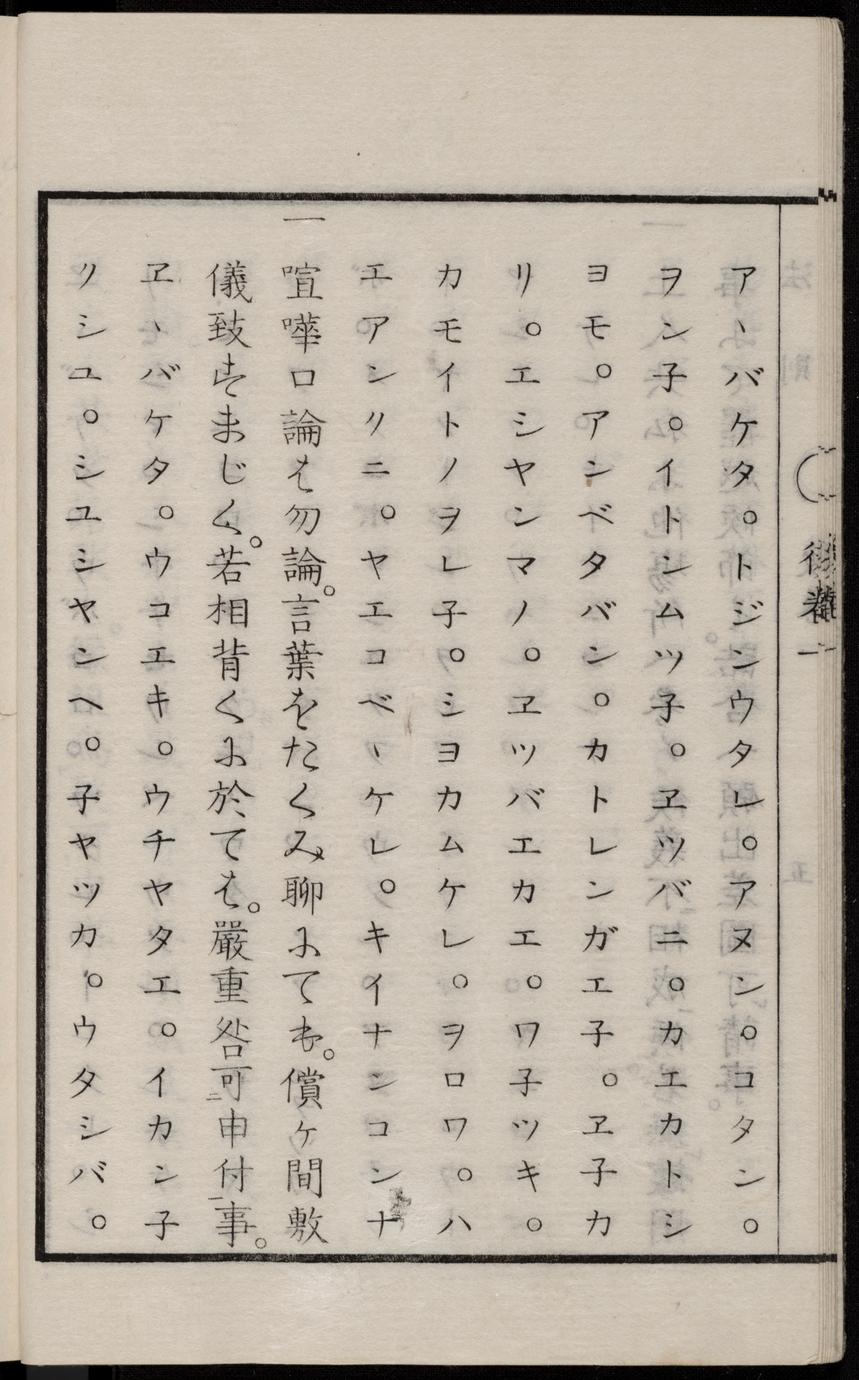 アヽバケタ。トジンウタレ。アヌン。コタン。
ヲン子。イトンムツ子。ヱツバニ。カエカトシ
ヨモ。アンベタバン。カトレンガエ子。ヱ子カ
リ。エシヤンマノ。ヱツバエカエ。ワ子ツキ。
カモイトノヲレ子。シヨカムケレ。ヲロワ。ハ
エアンクニ。ヤエコベヽケレ。キイナンコンナ
一 喧嘩口論ハ勿論。言葉をたくみ聊にても。償ケ間敷
儀致すまじく。若相背くに於てハ。嚴重咎可二申付一事。
ヱヽバケタ。ウコエキ。ウチヤタエ。イカン子
クシユ。シユシヤンヘ。子ヤツカ。ウタシバ。